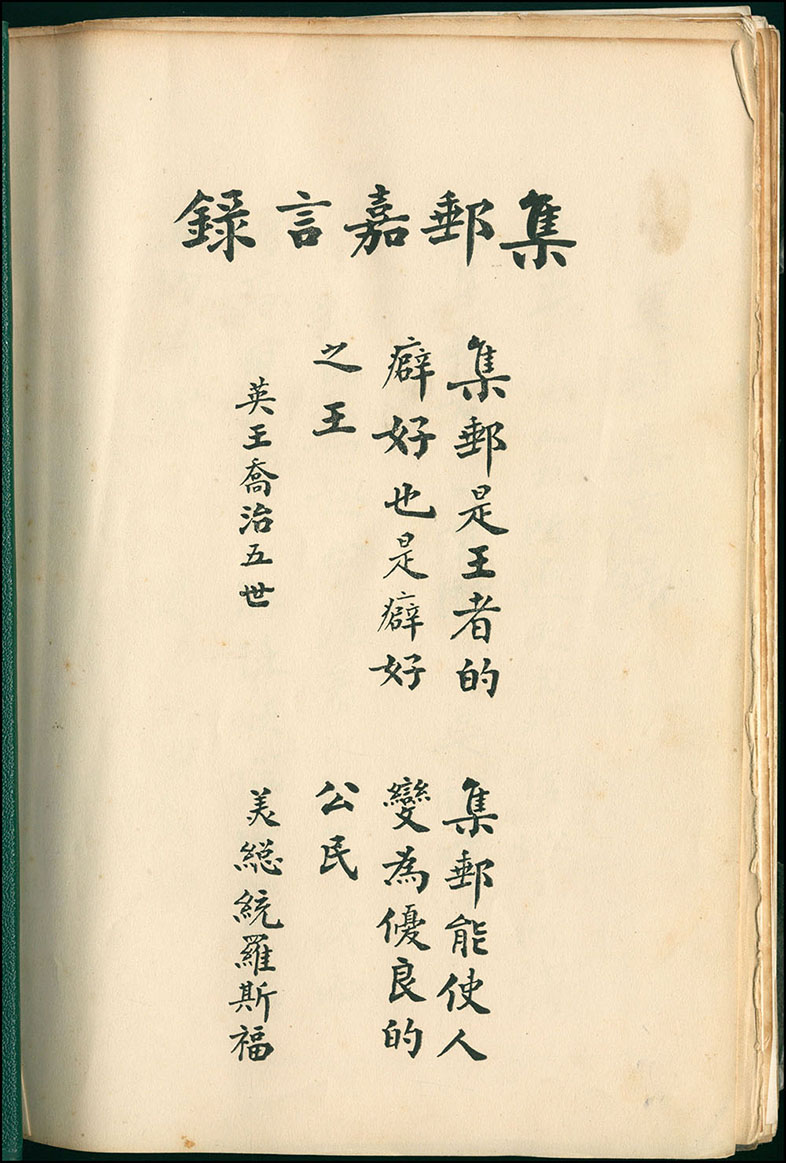 集郵嘉言錄
集郵是王者的
癖好也是癖好
之王
英王喬治五世
集郵能使人
變為優良的
公民
美総統羅斯福